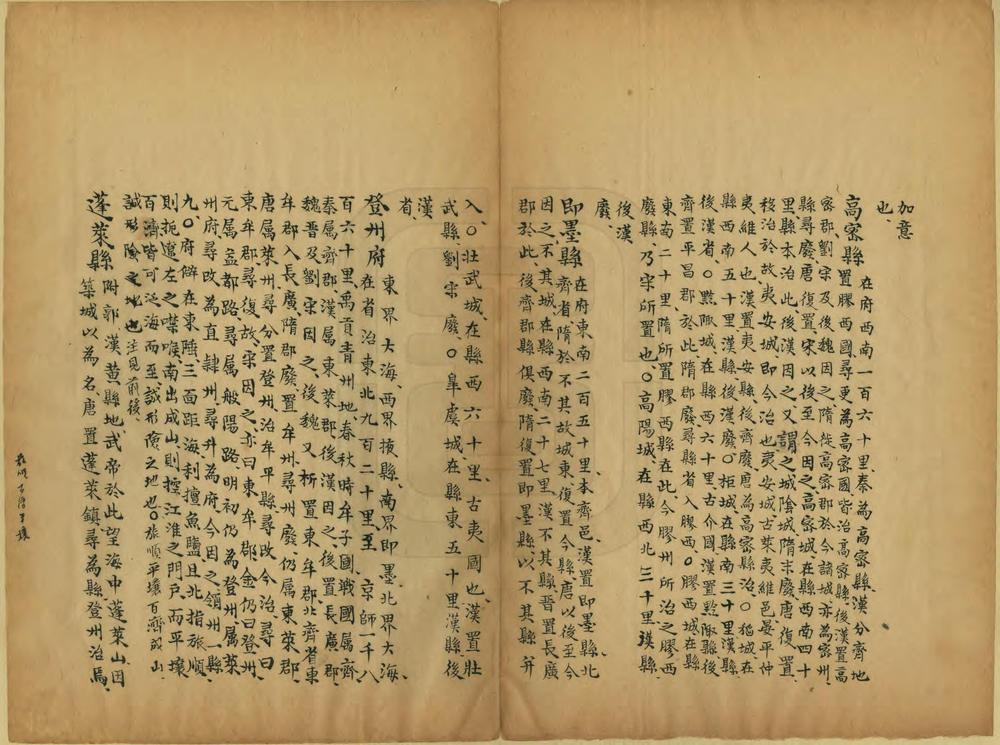 加意
也、
高密縣 在府西南一百六十里、秦為高密縣、漢分齊地
置膠西國尋更為高密國皆治高密縣、後漢置高
密郡、劉宋及後魏因之、隋徙高密郡於今諸城、亦為密州、
縣尋廢、唐復置、宋以後至今因之、高密城、在縣西南四十
里、縣本治此、後漢因之、又謂之城陰城、隋末廢、唐復置、
移治於故夷安城、即今治也、夷安城、古萊夷維邑、晏平仲
夷維人也、漢置夷安縣、後齊廢、唐為高密縣治、○稻城、在
縣西南五十里漢縣、後漢廢、○柜城、在縣南三十里漢縣、
後漢省、○黔陬城、在縣西六十里、古介國、漢置黔陬縣、後
齊置平昌郡於此、隋郡廢、尋縣省入膠西、○膠西城、在縣
東南二十里、隋所置膠西縣在此、今膠州所治之膠西
廢縣、乃宋所置也、○高陽城、在縣西北三十里、漢縣
後漢
廢、
即墨縣 在府東南二百五十里、本齊邑、漢置即墨縣、北
齊省、隋於不其故城東、復置今縣、唐以後至今
因之、不其城、在縣西南二十七里、漢不其縣、晉置長廣
郡於此、後齊郡縣俱廢、隋復置即墨縣、以不其縣并
入、○壮武城、在縣西六十里、古夷國也、漢置壯
武縣、劉宋廢、○皐虞城、在縣東五十里漢縣、後
漢
省、
登州府 東界大海、西界掖縣、南界即墨、北界大海、
在省治東北九百二十里、至京師一千八
百六十里、禹貢青州地、春秋時牟子國、戰國屬齊、
秦屬齊郡、漢屬東萊郡、後漢因之、後置長廣郡、
魏晉及劉宋因之、後魏又析置東牟郡、北齊省東
牟郡入長廣、隋郡廢、置牟州、尋州廢、仍屬東萊郡、
唐屬萊州、尋分置登州、治牟平縣、尋改今治、尋曰
東牟郡、尋復故、宋因之、亦曰東牟郡、金仍曰登州、
元屬益都路、尋屬般陽路、明初仍為登州、屬萊
州府、尋改為直隸州、尋升為府、今因之、領州一縣
九、○府僻在東陲、三面距海、利擅魚鹽、且北指旅順、
則扼遼左之噤喉、南出成山、則控江淮之門戶、而平壤
百濟、皆可泛海而至、誠形險之地也、○旅順、平壤、百濟、成山、
注見前後、
誠形險之地也
蓬萊縣 附郭、漢黄縣地、武帝於此望海中蓬萊山、因
築城以為名、唐置蓬萊鎮、尋為縣、登州治焉、